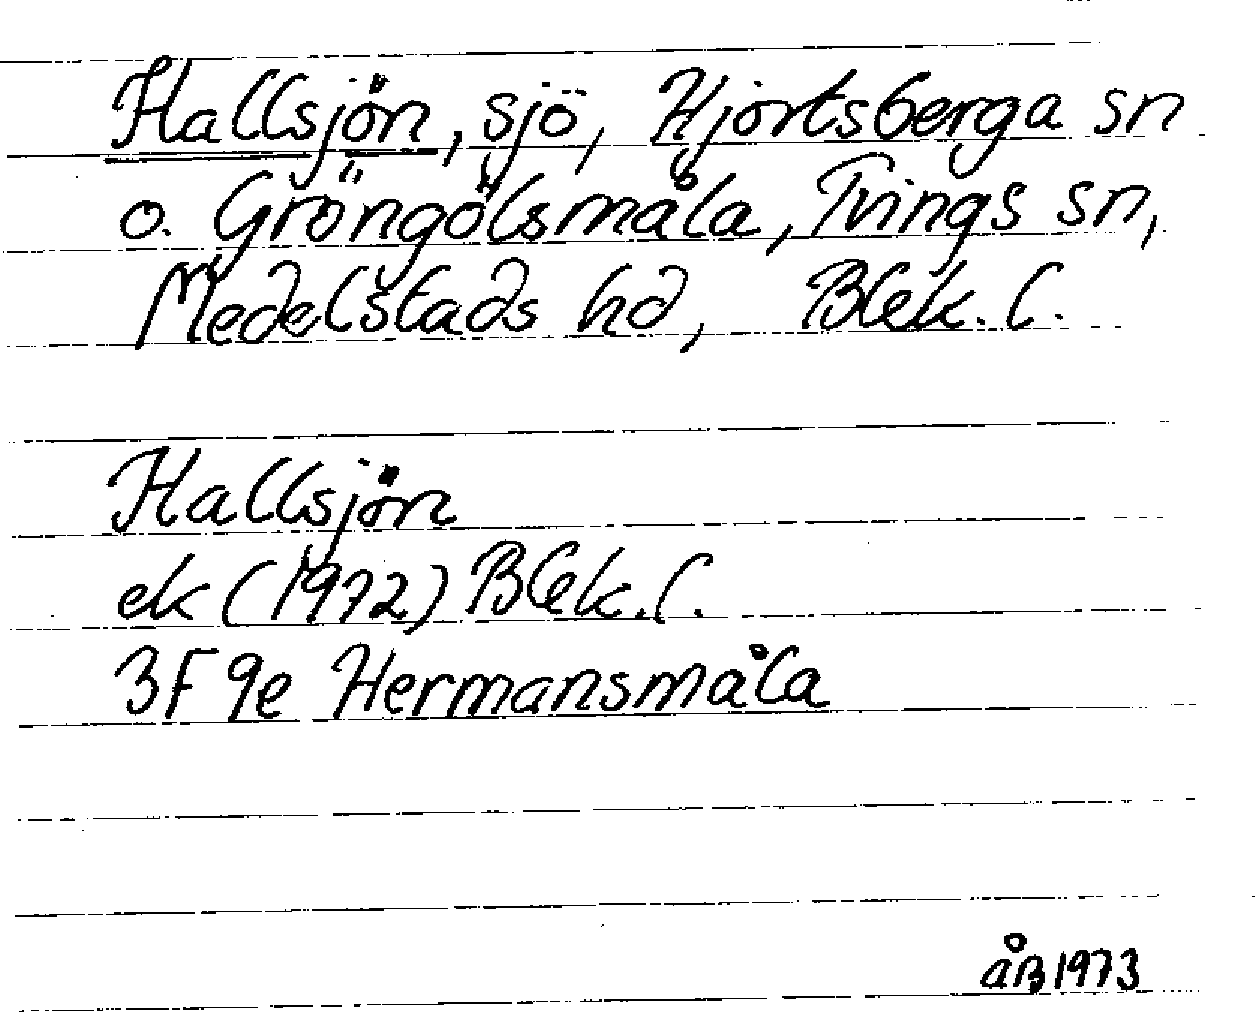 Hallsjön, sjö, Hjortsberga sn
o. Gröngölsmåla, Tvings sn,
Medelstads hd, Blek. l.
Hallsjön
ek (1972) Blek. l.
3F 9e Hermansmåla
åB 1973